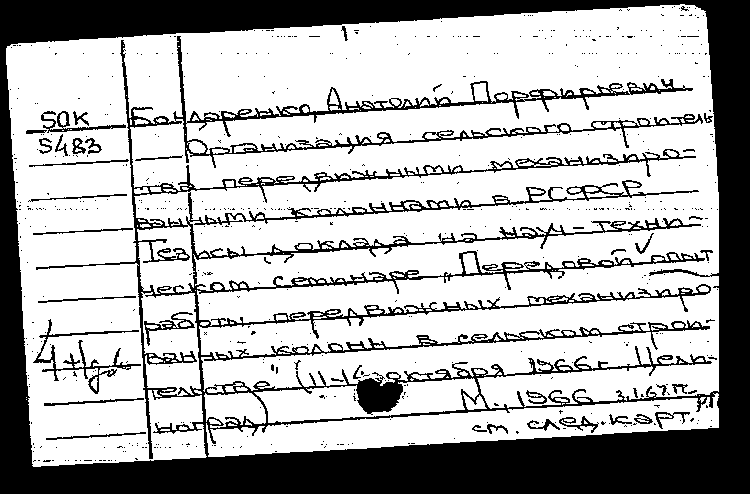 SaK Бондаренко, Анатолий Порфирьевич.
S483 Организация сельского строитель
ства передвижными механизиро-
ванными колоннами в РСФСР
Тезисы доклада на науч-техни-
ческом семинаре „Передовой опыт
работы передвижных механизиро-
ванных колонн в сельском строи-
тельстве" (11-14 октября 1966 г. Цели-
ноград)
М., 1966 3.1.67
см. след. карт.